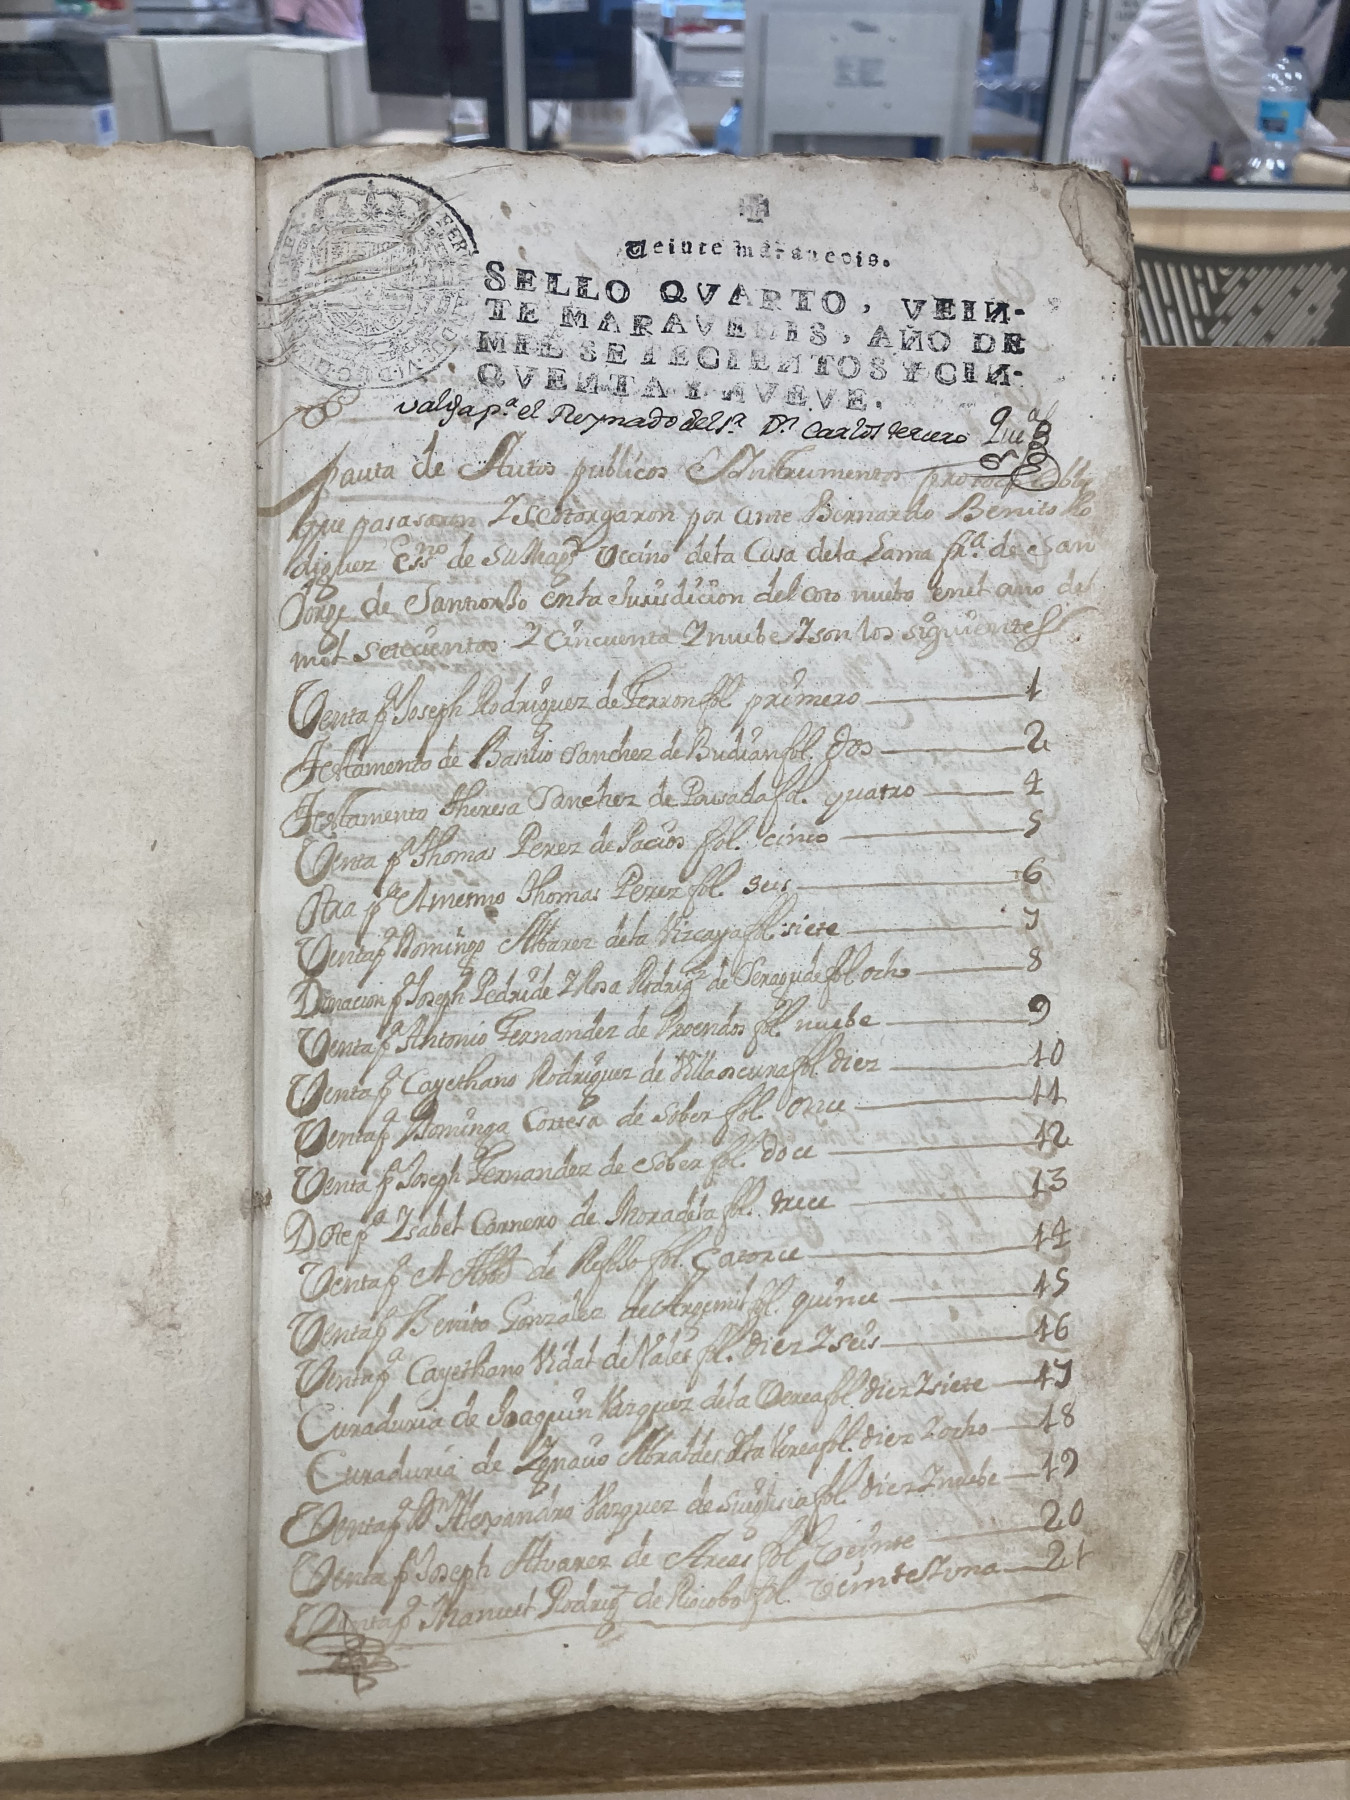 Veinte maravedis.
SELLO QVARTO, VEIN-
TE MARAVEDIS, AÑO DE
MIL SETECIENTOS Y CIN-
QVENTA Y NVEVE.
valga pª. el Reynado del Sr. Dn. Carlos tercero
pauta de Autos publicos Instrumentos
que pasasaron Y Se otorgaron por ante Bernardo Benito Ro
driguez Essno de Su Magd Vecino dela Casa dela Lama fra. de San
Jorge de Santiorxo en la Jurisdicion del Coto nuebo en el año de
mil Setecientos Y Cincuenta Y nuebe Y son los siguientes
Venta pª Joseph Rodriguez de Ferron fol. primero 1
Testamento de Basilio Sanchez de Budian fol. dos 2
Testamento Theresa Sanchez de Pousada fol. quatro 4
Venta pª Thomas Perez de Pacios fol. cinco 5
Otra pª el mesmo Thomas Perez fol. seis 6
Venta pª Domingo Albarez dela Vizcaya fol. siete 7
Donacion pª Joseph Pedride Y Rosa Rodrigz de Seragude fol. ocho 8
Venta pª Antonio Fernandez de Proendos fol. nuebe 9
Venta pª Cayethano Rodriguez de Villaoscura fol. diez 10
Venta pª Dominga Cortesa de Sober fol. once 11
Venta pª Joseph Fernandez de Sober fol. doce 12
Dote pª Ysabel Carnero de Moradela fol. trece 13
Venta pª el Abbd de fol. catorce 14
Venta pª Benito Gonzalez de Argemil fol. quince 15
Venta pª Cayethano Vidal de Vales fol. diez Y seis 16
Curaduria de Joaquin Vazquez dela Verea fol. diez Y siete 17
Curaduria de Ygnacio Abraldes dela Verea fol. diez Y ocho 18
Venta pª Dn Alexandro Vazquez de fol. diez Y nuebe 19
Venta pª Joseph Alvarez de Areas fol. Veinte 20
Venta pª Manuel Rodrigz de Riocobo fol. Veinte Y una 21